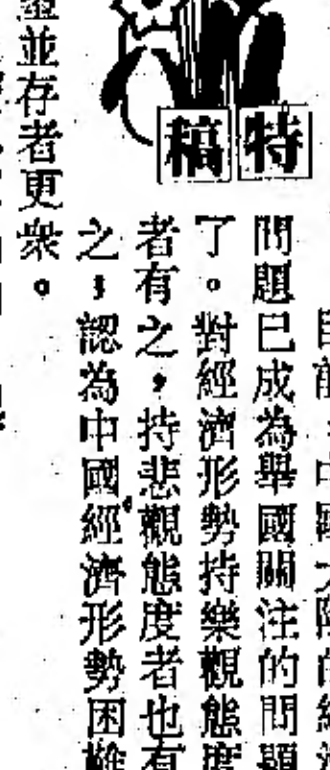 特稿
目前，中國大陸的經濟
問題已成為舉國關注的問題
了。對經濟形勢持樂觀態度
者有之，持悲觀態度者也有
之；認為中國經濟形勢困難
並存者更衆。